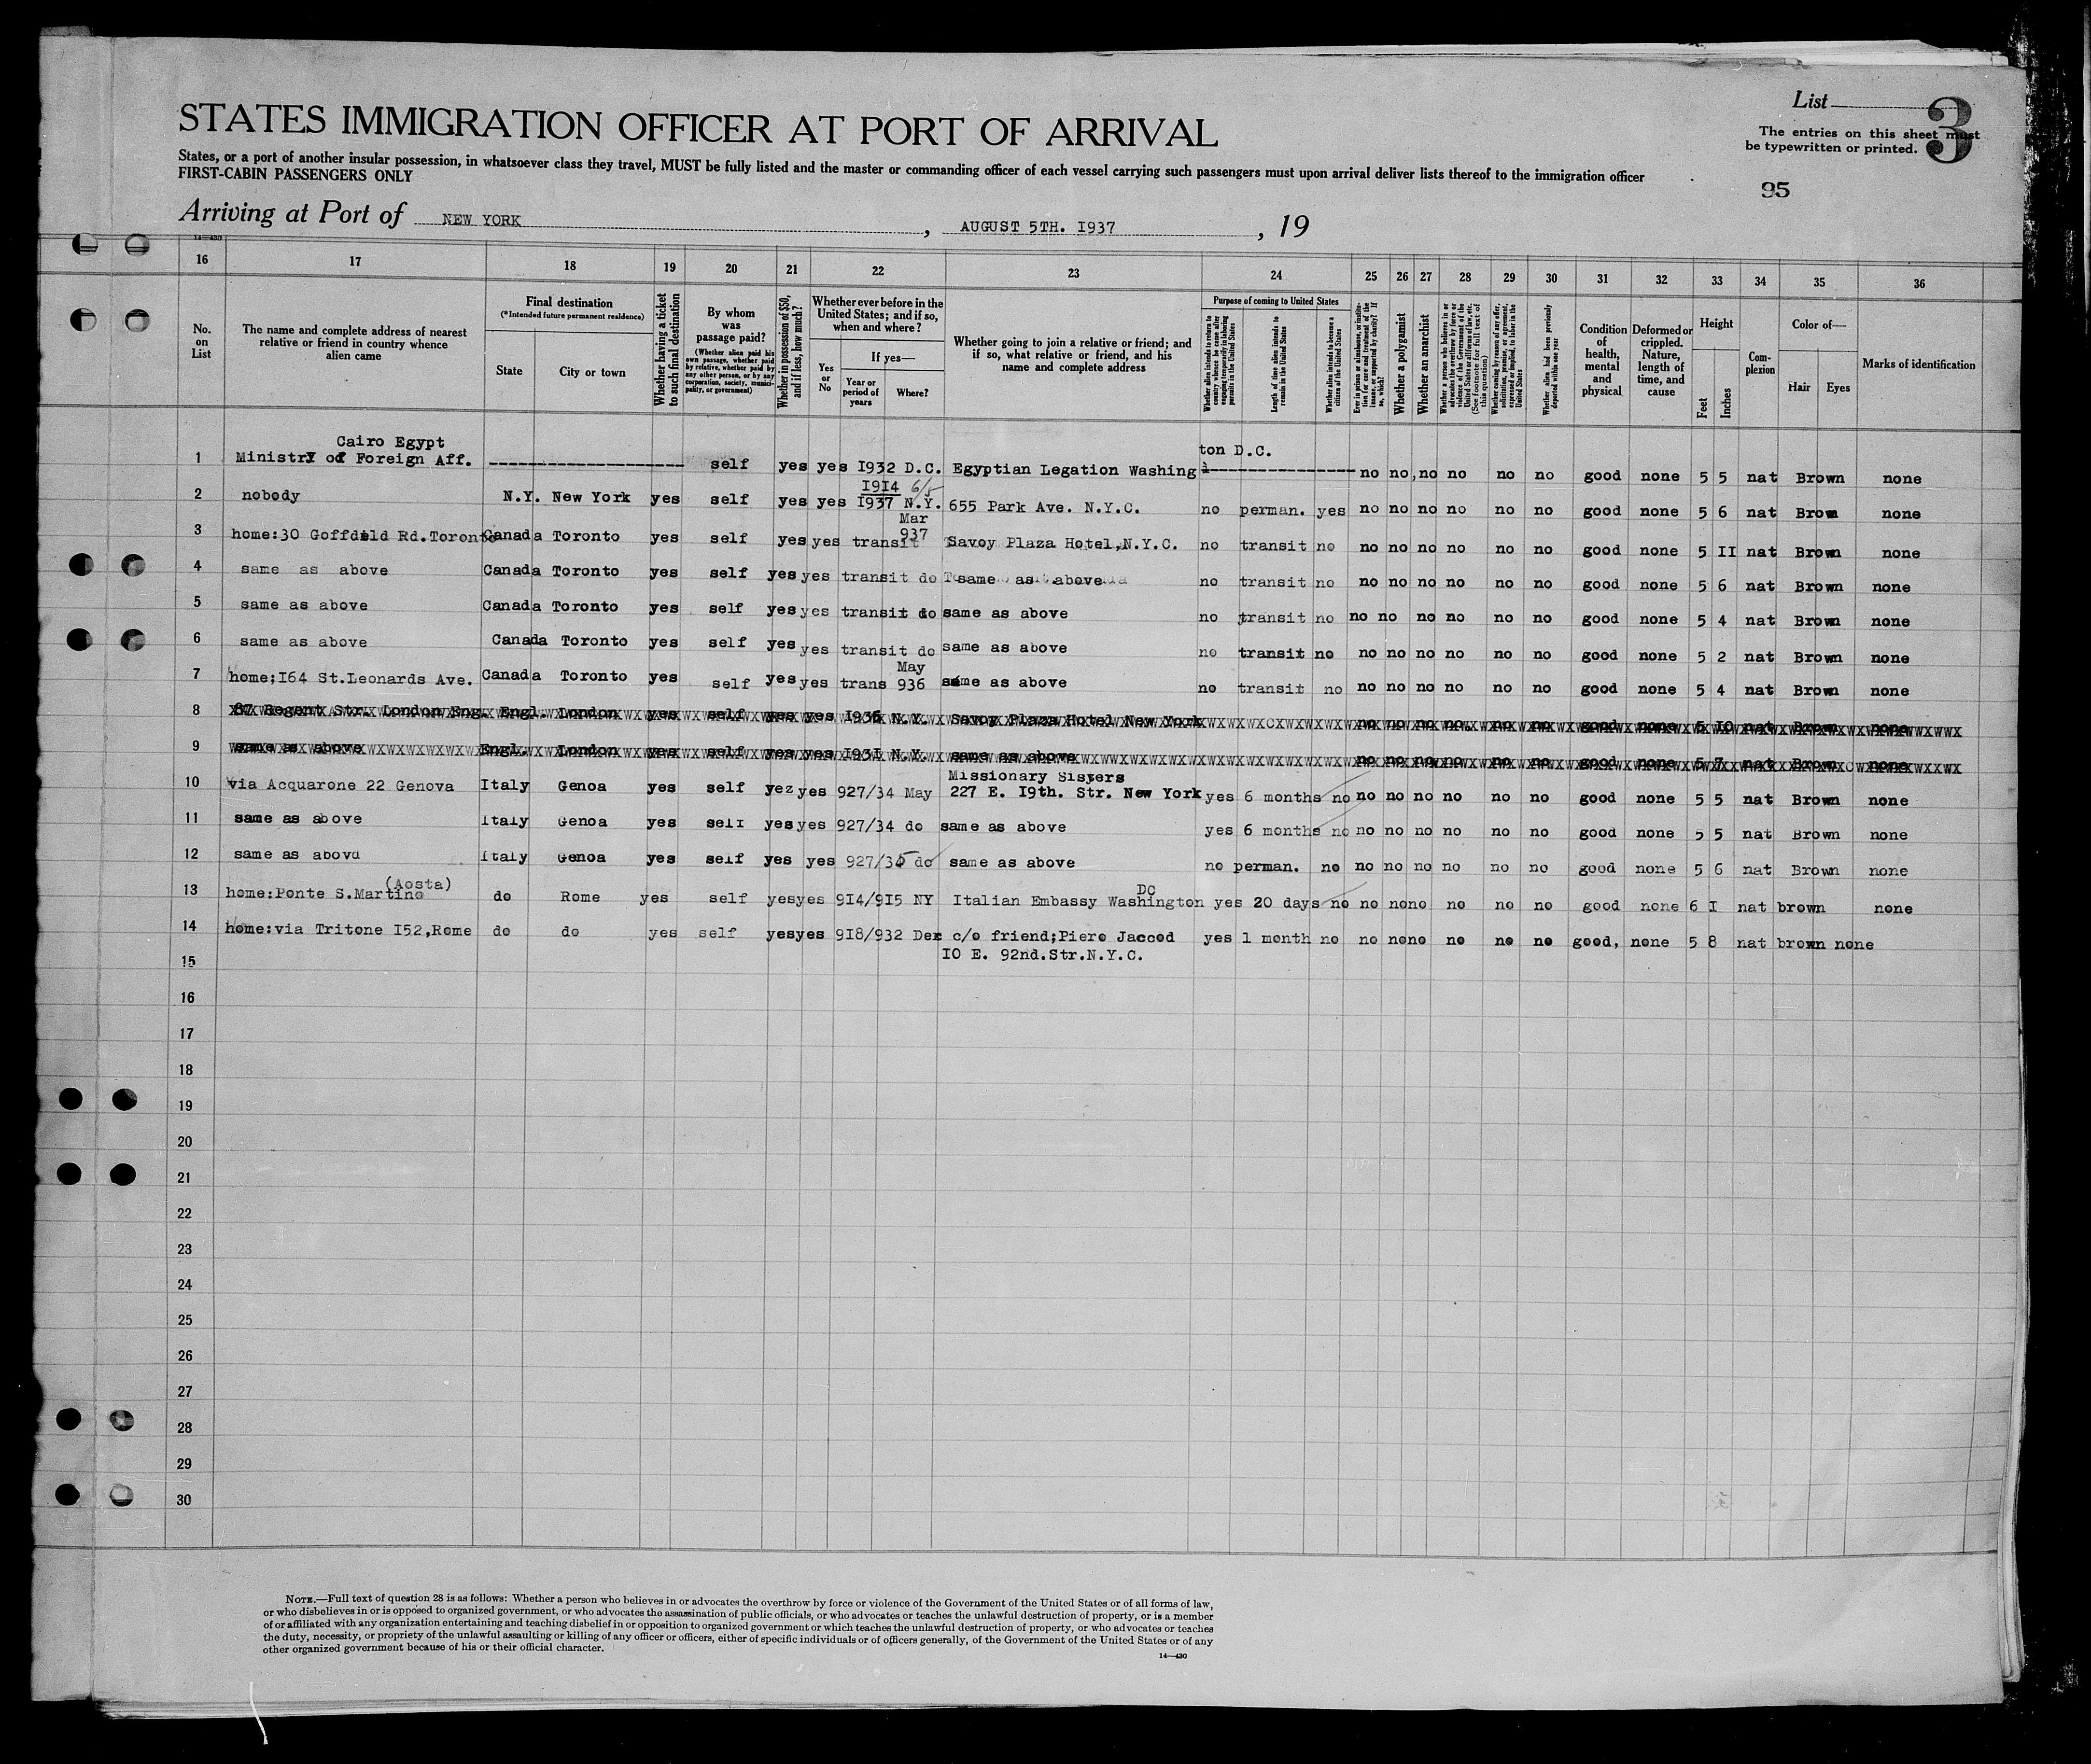 List
3
The entries on this sheet must
be typewritten or printed.
95
STATES IMMIGRATION OFFICER AT PORT OF ARRIVAL
States, or a port of another insular possession, in whatsoever class they travel, MUST be fully listed and the master or commanding officer of each vessel carrying such passengers must upon arrival deliver lists thereof to the immigration officer
FIRST-CABIN PASSENGERS ONLY
Arriving at Port of NEW YORK , AUGUST 5TH. I937 , 19
14—430
16 17 18 19 20 21 22 23 24 25 26 27 28 29 30 31 32 33 34 35 36
No. on List
The name and complete address of nearest relative or friend in country whence alien came
Final destination
(*Intended future permanent residence)
State
City or town
Whether having a ticket to such final destination
By whom was passage paid?
(Whether alien paid his own passage, whether paid by relative, whether paid by any other person, or by any corporation, society, municipality, or government)
Whether in possession of $50, and if less, how much?
Whether ever before in the United States; and if so, when and where?
Yes or No
If yes—
Year or period of years
Where?
Whether going to join a relative or friend; and if so, what relative or friend, and his name and complete address
Purpose of coming to United States
Whether alien intends to return to country whence he came after engaging temporarily in laboring pursuits in the United States
Length of time alien intends to remain in the United States
Whether alien intends to become a citizen of the United States
Ever in prison or almshouse, or institution for care and treatment of the insane, or supported by charity? If so, which?
Whether a polygamist
Whether an anarchist
Whether a person who believes in or advocates the overthrow by force or violence of the Government of the United States or all forms of law, etc. (See footnote for full text of this question)
Whether coming by reason of any offer, solicitation, promise, or agreement, expressed or implied, to labor in the United States
Whether alien had been previously deported within one year
Condition of health, mental and physical
Deformed or crippled. Nature, length of time, and cause
Height
Feet
Inches
Com-plexion
Color of—
Hair
Eyes
Marks of identification
Cairo Egypt ton D.C.
1 Ministry of Foreign Aff. ------------------- self yes yes I932 D.C. Egyptian Legation Washing ---------------- no no,no no no no good none 5 5 nat Brown none
I9I4 6/5
2 nobody N.Y. New York yes self yes yes I937 N.Y. 655 Park Ave. N.Y.C. no perman. yes no no no no no no good none 5 6 nat Brown none
Mar
937
3 home:30 Goffdild Rd.Toronto Canada Toronto yes self yes yes transit Savoy Plaza Hotel,N.Y.C. no transit no no no no no no no good none 5 II nat Brown none
4 same as above Canada Toronto yes self yes yes transit do same as above no transit no no no no no no no good none 5 6 nat Brown none
5 same as above Canada Toronto yes self yes yes transit do same as above no transit no no no no no no no good none 5 4 nat Brown none
6 same as above Canada Toronto yes self yes yes transit do same as above no transit no no no no no no no good none 5 2 nat Brown none
May
7 home;I64 St.Leonards Ave. Canada Toronto yes self yes yes trans 936 same as above no transit no no no no no no no good none 5 4 nat Brown none
8 87 Regent Str. London Eng. Engl. London yes self yes yes I936 N.Y. Savoy Plaza Hotel New York no no no no no no good none 5 IO nat Brown none
9 same as above Engl. London yes self yes yes I93I N.Y. same as above no no no no no no good none 5 7 nat Brown none
Missionary Sisters
10 via Acquarone 22 Genova Italy Genoa yes self yez yes 927/34 May 227 E. I9th. Str. New York yes 6 months no no no no no no no good none 5 5 nat Brown none
11 same as above Italy Genoa yes self yes yes 927/34 do same as above yes 6 months no no no no no no no good none 5 5 nat Brown none
12 same as abovd Italy Genoa yes self yes yes 927/35 do same as above no perman. no no no no no no no good none 5 6 nat Brown none
(Aosta) DC
13 home:Ponte S.Martino do Rome yes self yesyes 9I4/9I5 NY Italian Embassy Washington yes 20 days no no nono no no no good none 6 I nat brown none
14 home:via Tritone I52,Rome do do yes self yesyes 9I8/932 Dez c/o friend;Piero Jaccod yes l month no no nono no no no good, none 5 8 nat brown none
15 IO E. 92nd.Str.N.Y.C.
16
17
18
19
20
21
22
23
24
25
26
27
28
29
30
NOTE.—Full text of question 28 is as follows: Whether a person who believes in or advocates the overthrow by force or violence of the Government of the United States or of all forms of law,
or who disbelieves in or is opposed to organized government, or who advocates the assassination of public officials, or who advocates or teaches the unlawful destruction of property, or is a member
of or affiliated with any organization entertaining and teaching disbelief in or opposition to organized government or which teaches the unlawful destruction of property, or who advocates or teaches
the duty, necessity, or propriety of the unlawful assaulting or killing of any officer or officers, either of specific individuals or of officers generally, of the Government of the United States or of any
other organized government because of his or their official character.
14—430